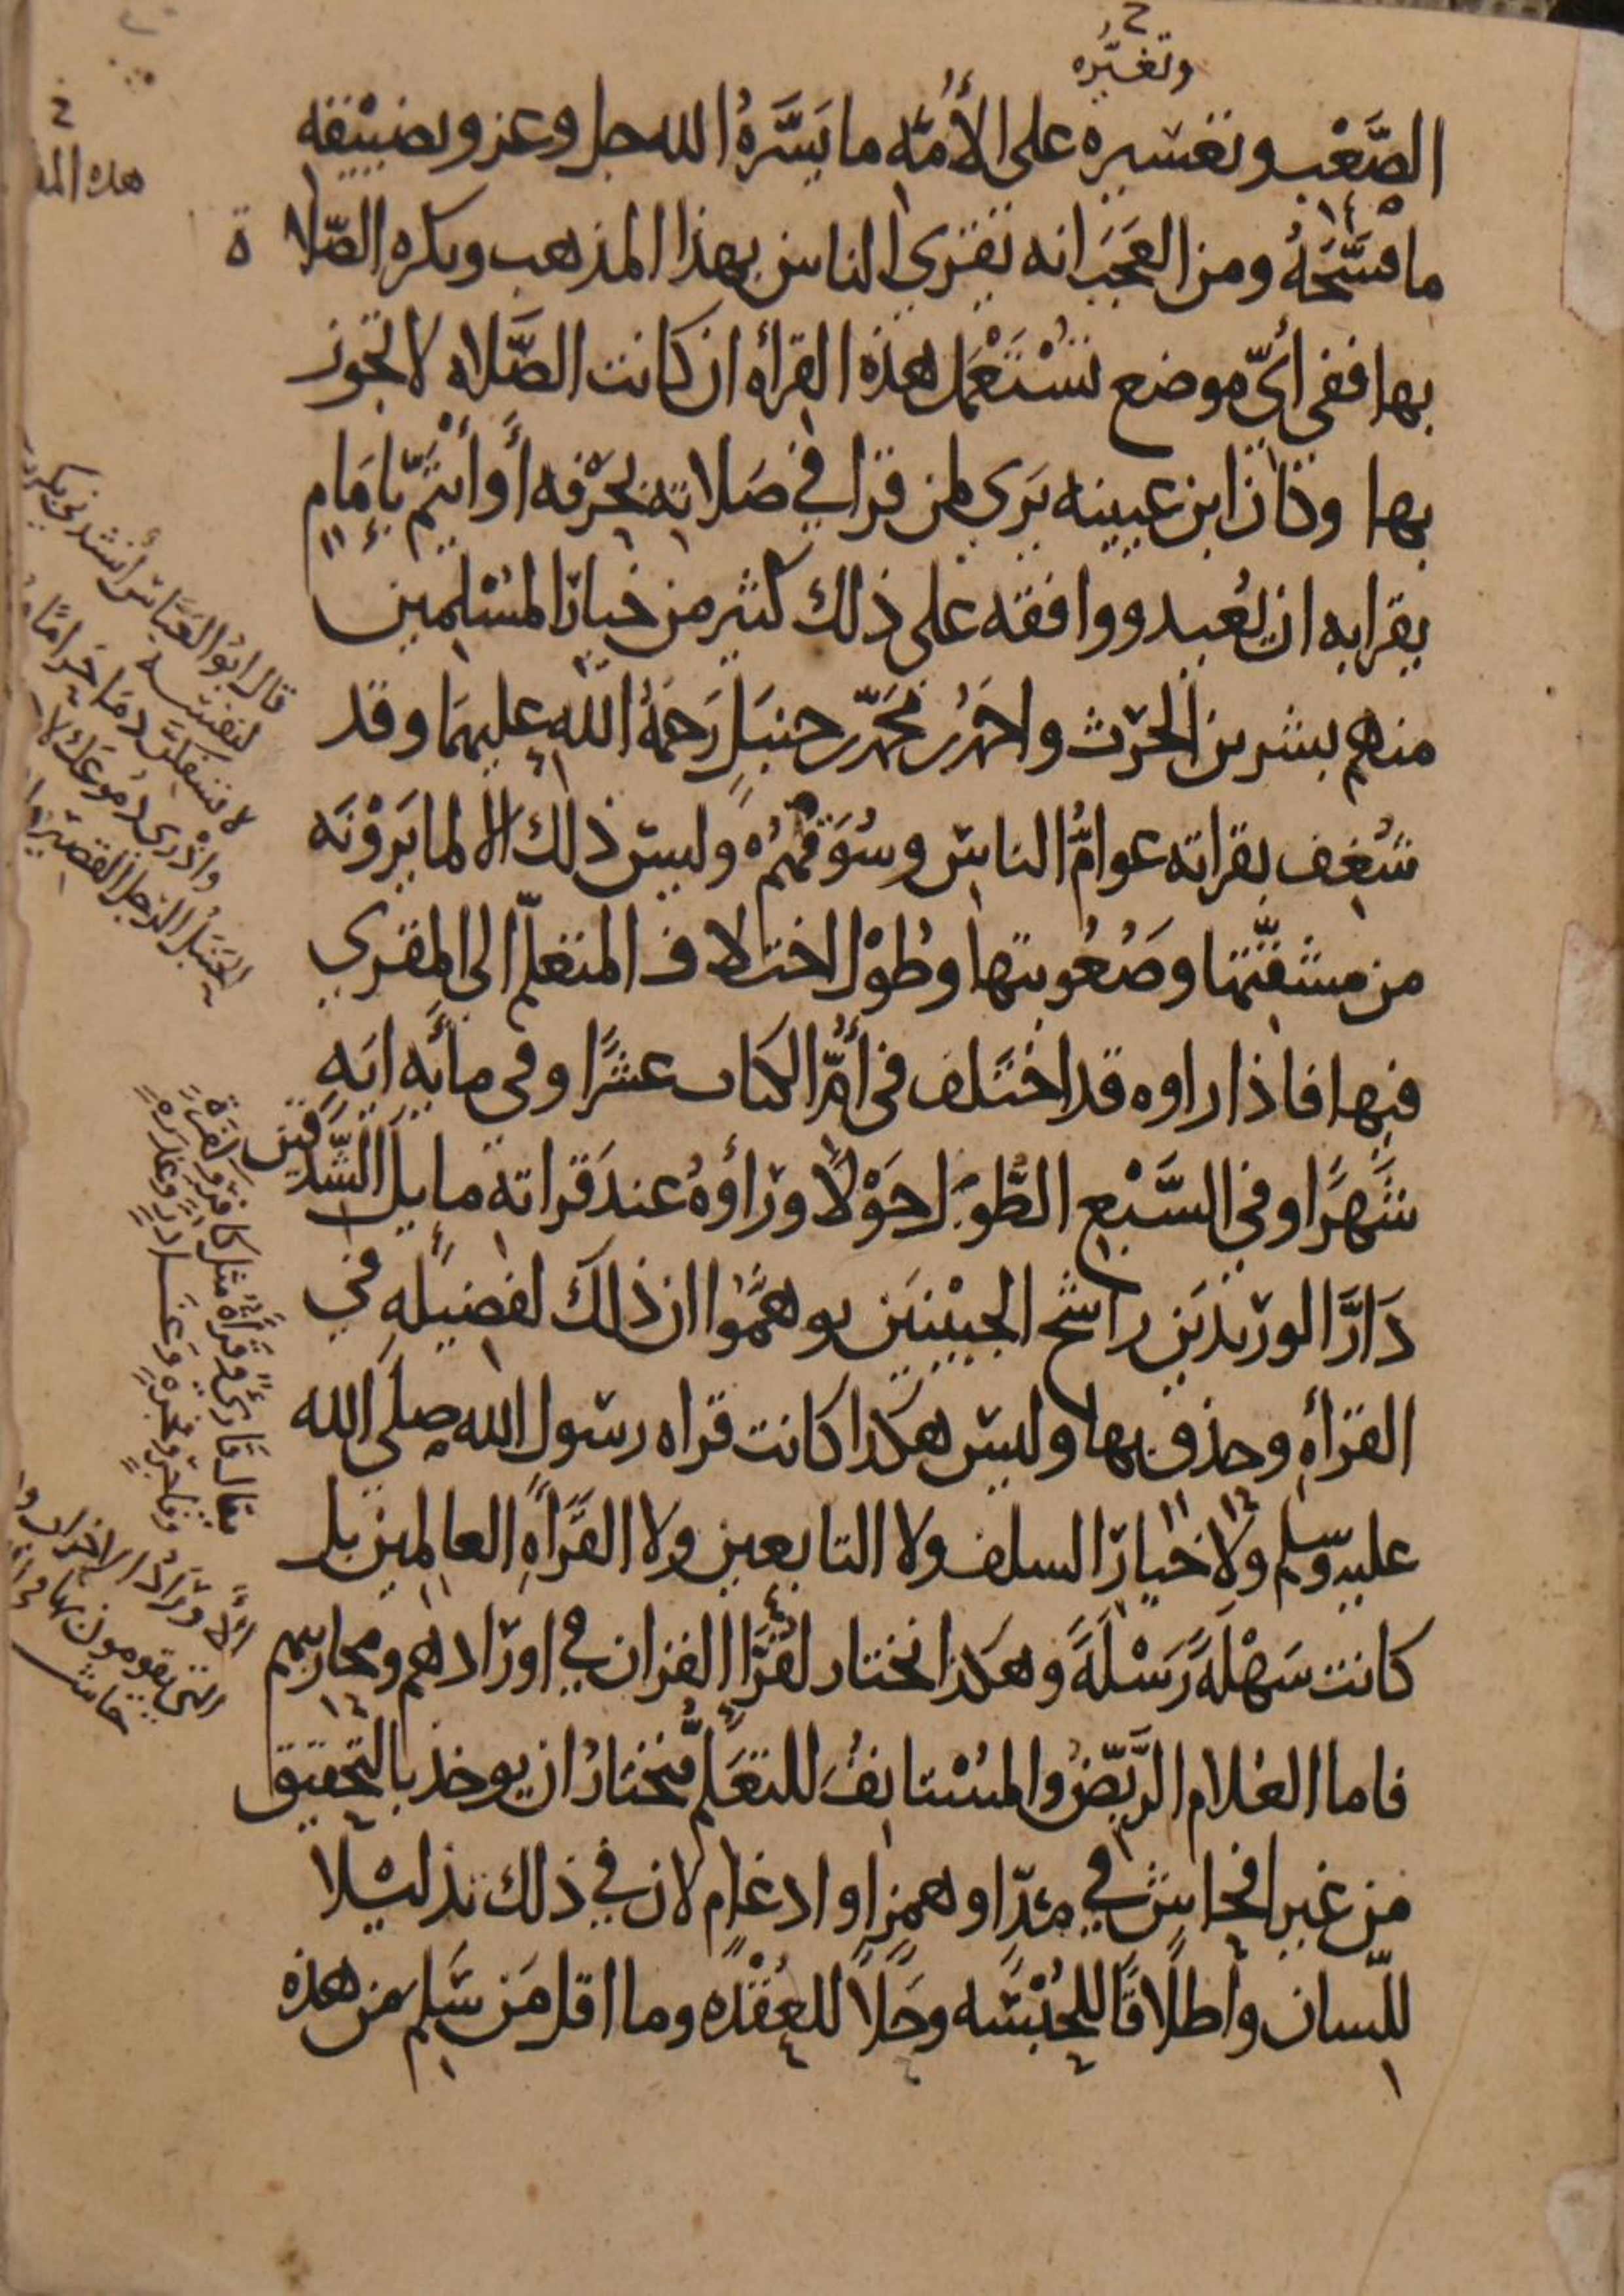 وتغيّره
الصَّعْب وتعسيره على الأُمَّه ما يَسَّرَهُ الله جل وعز وتضييقه
ما فَسَّحَهُ ومن العَجَب انه يقرئ الناس بهذا المذهب ويكره الصّلاة
بها ففي أىّ موضع تُسْتَعْمَل هذه القراه ان كانت الصَّلاه لا تجوز
بها وكان ابن عيينه يَرى لمن قرا في صَلاته بحَرْفه أَو أئتمّ بإمَامٍ
يقرا به ان يُعيد ووافقه على ذلك كثير من خيار المُسْلمين
منهم بشر بن الحرث واحمَد بن محمّد بن حنبَل رَحمَةُ الله عليهمَا وقد
شُغِف بقراته عوامُّ الناس وسُوَقُهُم وليس ذلك الا لما يَرَوْنَه
من مشقّتها وصُعُوبتها وطُوْل اختلاف المتعلّم الى المقرئ
فيها فاذا راوه قد اختَلف في أُمّ الكتاب عشْرًا وفي مائَهِ ايَهٍ
شَهرًا وفي السَّبْع الطُّوَل حَوْلًا ورَأوْهُ عند قراته مايل الشِّدقَين
دَارَّ الوريدَين راشح الجبِيْنيَن توهمَّوا ان ذلك لفضيله في
القرأهِ وحذق بها وليس هكذا كانت قراه رسول الله صلى الله
عليه وسلم ولا خيار السلف ولا التابعين ولا القَرَأَهِ العالمين بل
كانت سَهْلَةً رَسْلَةً وهكذا نختار لقُرَّا القران في اورَادهم ومحاريبهم
فاما الغلام الرَّيّض والمُسْتانِفُ للتعَلُّم فنختارُ ان يوخذ بالتحقيق
من غير افحاش في مدّ او همز او ادغام لان في ذلك تذليلا
للّسان واطلاقًا للحُبْسَه وحَلاً للعُقْدَه وما اقل مَن سَلِم من هذه
هذه
قال ابُو العَبَّاس أنشدني
لنفسه
لا تسفكنَّ دمَا حَرامًا
واذْري دُموعَك لا
الرّجل القصير
يقال قَارئ وقَرَأه مثل كافر وكَفَرَة
وفاجر وفجَرَه وغَادر وغَدَرَه
الأورَادُ الاحزاب
التي يقومون بها
حاشيه